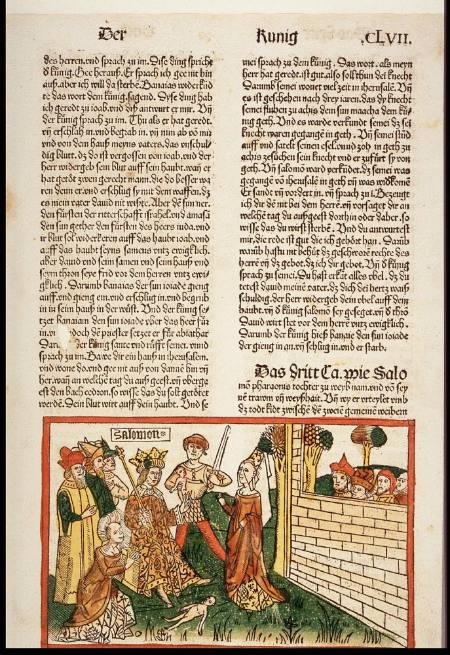 Der Kunig .CLVII.
des herren.vnd sprach zu im. Dise ding spricht
d̕ kůnig. Gee herauß. Er sprach ich gee nit hin
auß.aber ich will da sterbē. Banaias widerkůn
te das wort dem kůnig.sagend. Dyse ding hab
ich geredt zu ioab.vnd diß antwurt er mir. Vn̄
der kůnig sprach zu im. Thů als er hat geredt.
vn̄ erschlah in.vnd begrab in.vn̄ nim ab vō mir
vnd von dem hauß meyns vaters.das vnschul
dig blůt.dz do ist vergossen von ioab.vnd der
herr widergeb sein blůt auff sein haubt.wañ er
hat getôt zwen gerecht mann.die do besser wa
ren denn er.vnd erschlůg sy mit dem waffen.dz
es mein vater dauid nit wißte. Aber den sun ner.
den fůrsten der ritterschafft israhel.vnd amasā
den sun gether den fůrsten des heers iuda.vnd
ir blůt sol widerkeren auff das haubt ioab.vnd
auff das haubt seyns samens vntz ewigklich.
aber dauid vnd seim samen vnd seim hauß vnd
seym thron seye frid von dem herren vntz ewi
gklich. Darumb banaias der sun ioiade gieng
auff.vnd gieng ein.vnd erschlůg in.vnd begrůb
in in seim hauß in der wůst. Vnd der kůnig se
tzet banaiam den sun ioiade ůber das heer fůr
in. doch dē priester setzet er fůr abiathar
Dar. der kůnig sante vnd růfft semei. vnd
sprach zu im. Bawe dir ein hauß in iherusalem.
vnd wone do.vnd gee nit auß von danne hin vn̄
her.wañ an welche tag du auß geest.vn̄ ůberge
est den bach cedron.so wisse das du solt getôtet
werdē. Sein blůt wirt auff dein haubt. Vnd se
mei sprach zu dem kůnig. Das wort. als meyn
herr hat geredt.ist gůt.also soll thůn dei knecht
Darumb semei wonet vil zeit in iherusalē. Vn̄
es ist geschehen nach drey iaren.das dy knecht
semei fluhen zu achis dem sun maacha dem ků
nig geth. Vnd es warde verkundt semei dz sei
knecht waren gegangē in geth. Vn̄ semei stůd
auff vnd satelt seinen esel.vnnd zoh in geth zu
achis zesůchen sein knecht vnd er zufůrt sy von
geth. Vn̄ salomō ward verkůndt.dz semei was
gegangē vō iherusalē in geth vn̄ was widkomē
Er sandt vn̄ vordert in. vn̄ sprach zu i̅ Bezeugt
ich dir dē nit bei dem herrē.vn̄ vorsaget dir an
welche tag du außgeest dorthin oder daher.so
wisse das du wirst sterbē. Vnd du antwurtest
mir.die rede ist gůt die ich gehôrt han. Darůb
warůb hastu nit behůt dz geschworē rechte des
herrē vn̄ dz gebot.dz ich dir gebot. Vn̄ d̕ kůnig
sprach zu semei. Du hast erkāt alles ůbel. dz du
tetest dauid meinē vater.dz dich dei hertz waiß
schuldig.der herr widergeb dein ůbel auff dein
haubt.vn̄ d̕ kůnig salomō sey gesegēt.vn̄ d̕ thrō
Dauid wirt stet vor dem herrē vntz ewigklich.
Darumb der kůnig hieß banaie den sun ioiade
der gieng in auß.vn̄ schlůg in.vnd er starb.
Das dritt Ca. wie Salo
mō pharaonis tochter zu weyb nam.vnd vō sey
nē trawm vn̄ weyßhait. Vn̄ wy er vrteylet vmb
dz todt kidt zwischē dē zweiē gemeinē weibern
Salomon